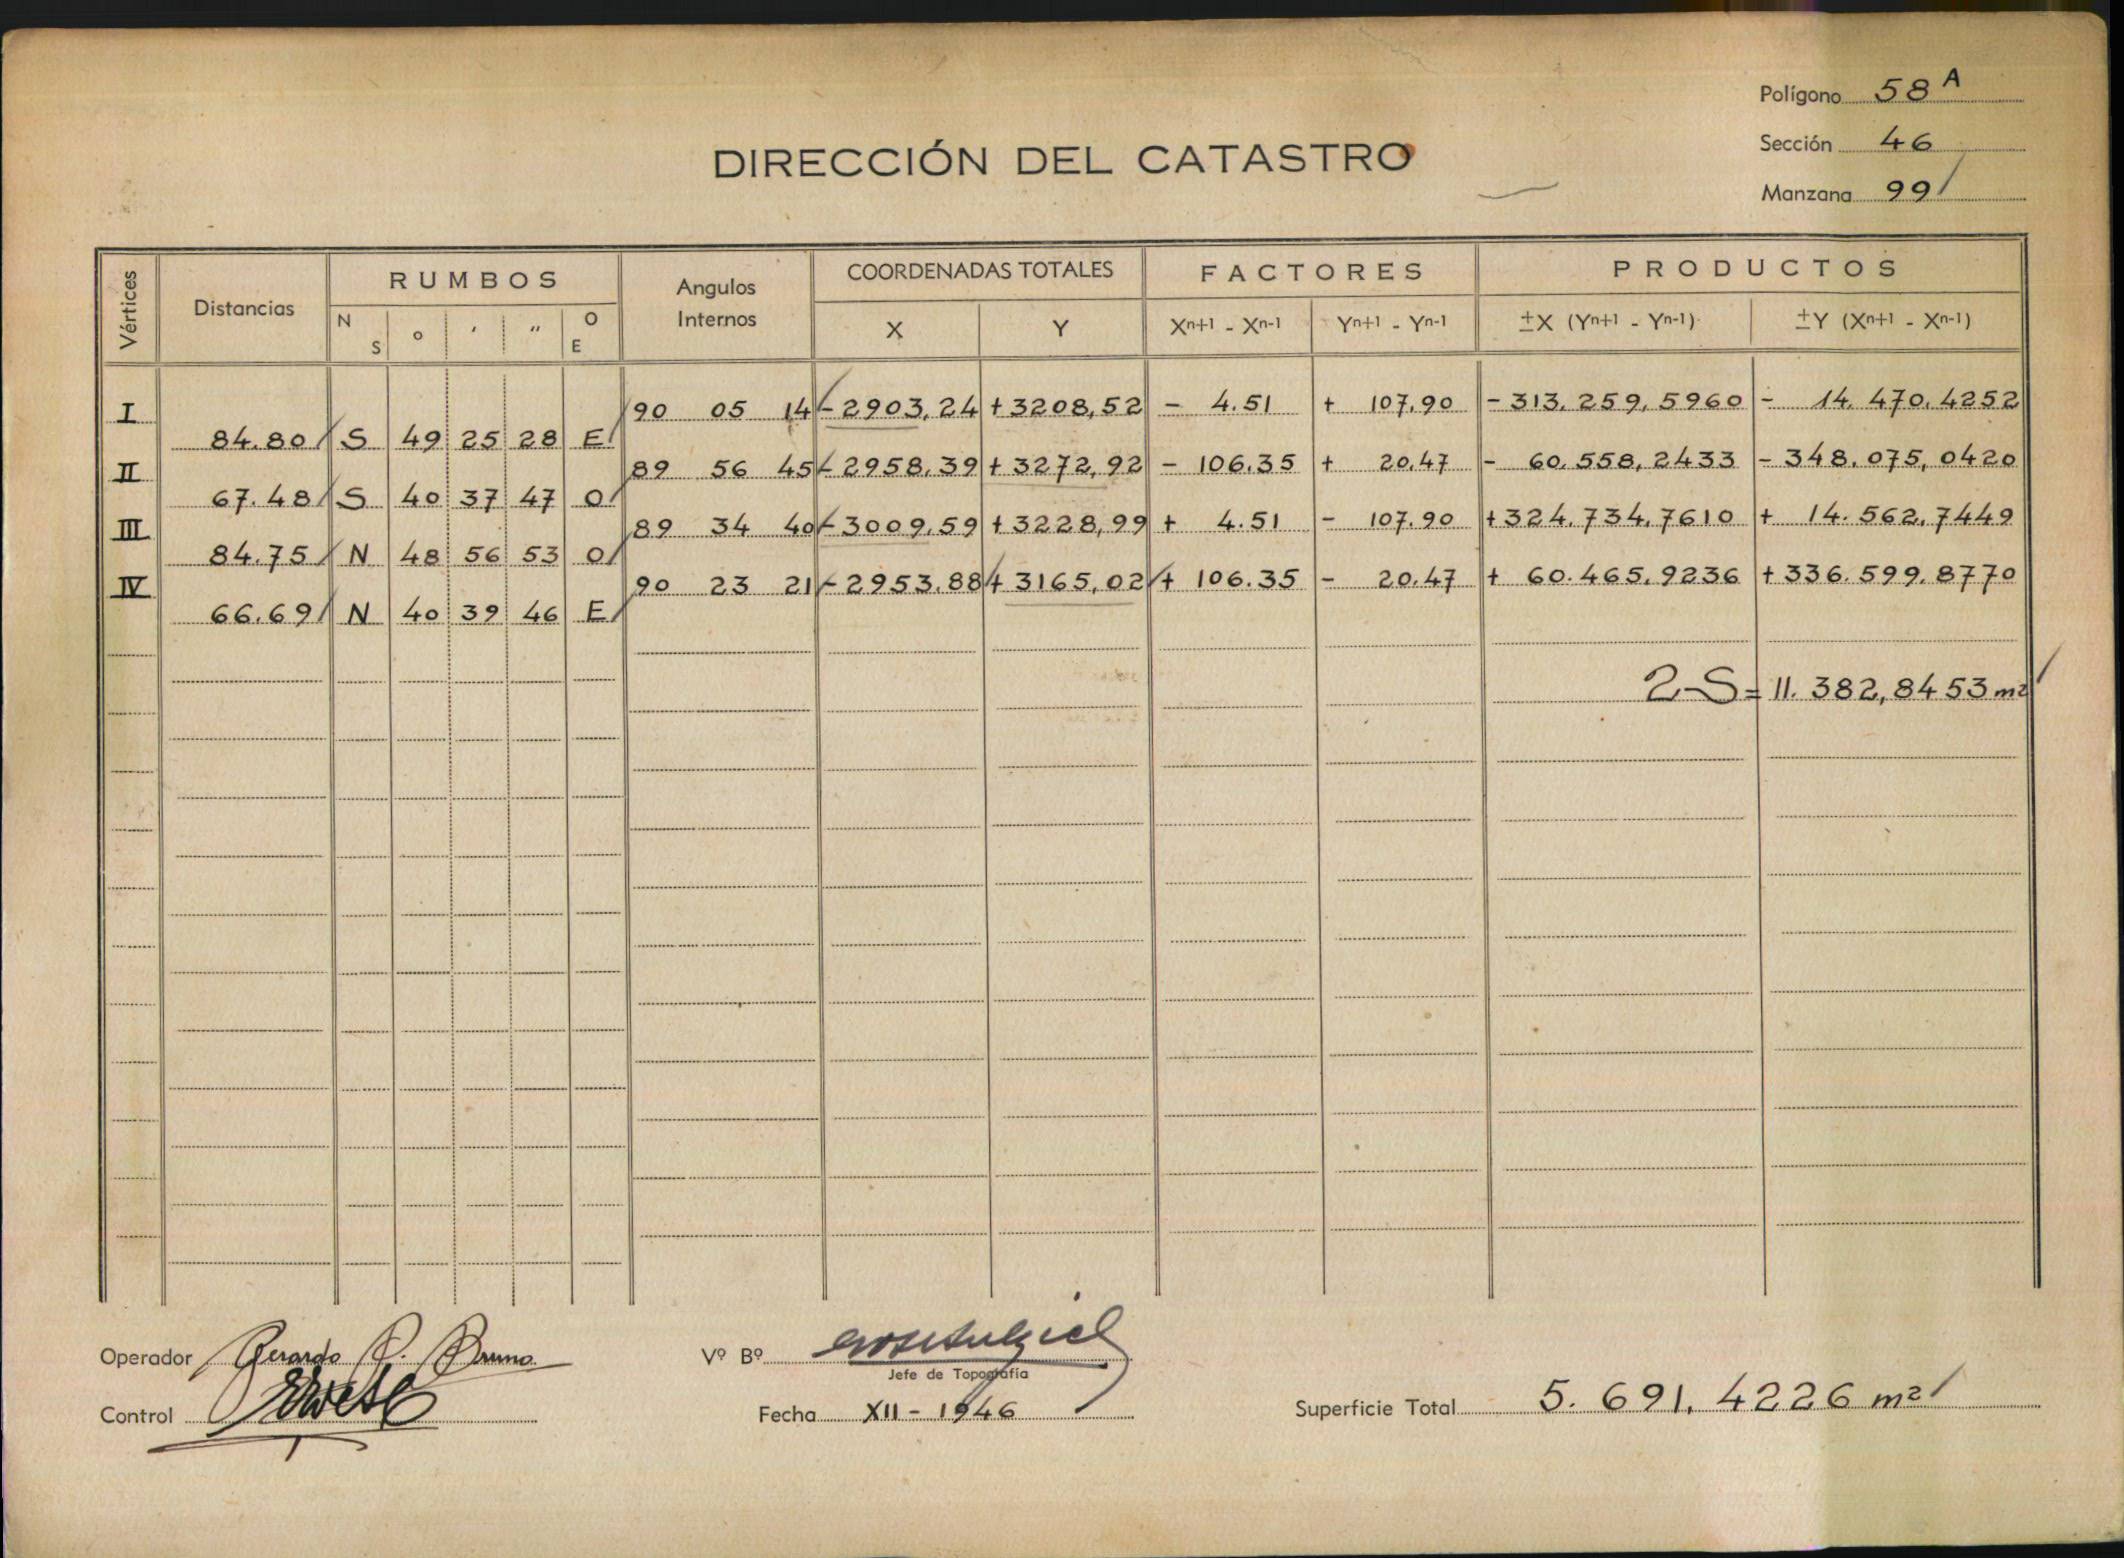 Polígono 58 A
Sección 46
Manzana 99
DIRECCIÓN DEL CATASTRO
Vértices Distancias RUMBOS Angulos Internos COORDENADAS TOTALES FACTORES PRODUCTOS
N S o ′ ″ O E X Y Xn+1 - Xn-1 Yn+1 - Yn-1 ±X (Yn+1 - Yn-1) ±Y (Xn+1 - Xn-1)
I 90 05 14 - 2903,24 + 3208,52 - 4.51 + 107.90 - 313.259,5960 - 14.470.4252
84.80 S 49 25 28 E
II 89 56 45 - 2958.39 + 3272,92 - 106.35 + 20.47 - 60.558,2433 - 348.075,0420
67.48 S 40 37 47 O
III 89 34 40 - 3009,59 + 3228,99 + 4.51 - 107.90 + 324.734,7610 + 14.562,7449
84.75 N 48 56 53 O
IV 90 23 21 - 2953.88 + 3165,02 + 106.35 - 20.47 + 60.465,9236 + 336.599.8770
66.69 N 40 39 46 E
2 S = 11.382,8453 m2
Operador Gerardo R. Bruno
Vº Bº
Jefe de Topografía
Control
Fecha XII - 1946
Superficie Total 5.691,4226 m2